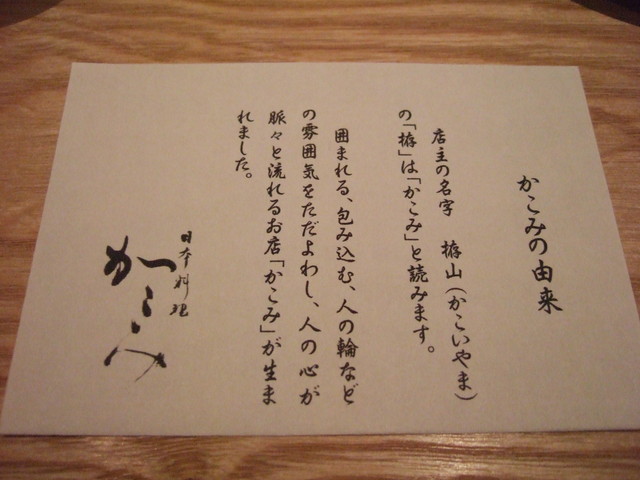 かこみの由来
店主の名字　栫山(かこいやま)
の「栫」は「かこみ」と読みます。
囲まれる、包み込む、人の輪など
の雰囲気をただよわし、人の心が
脈々と流れるお店「かこみ」が生ま
れました。
日本料理
かこみ